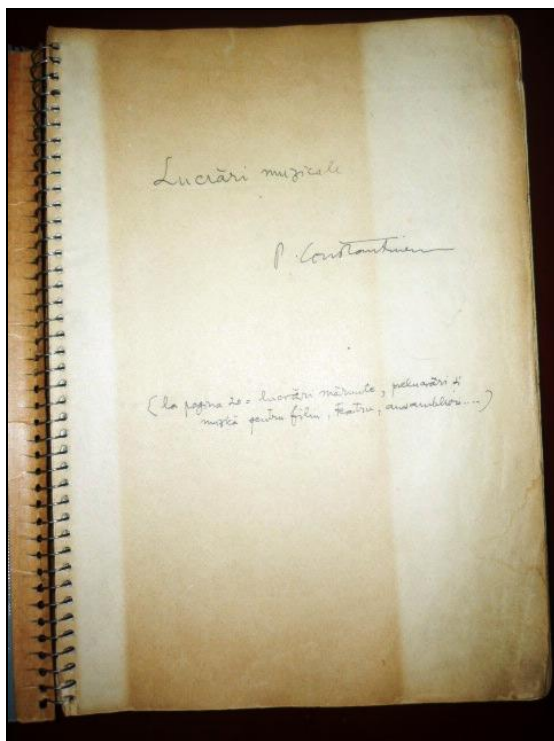 Lucrări muzicale
P. Constantinescu
(la pagina 20 = lucrări mărunte, prelucrări și
muzică pentru film, teatru, ansambluri...)